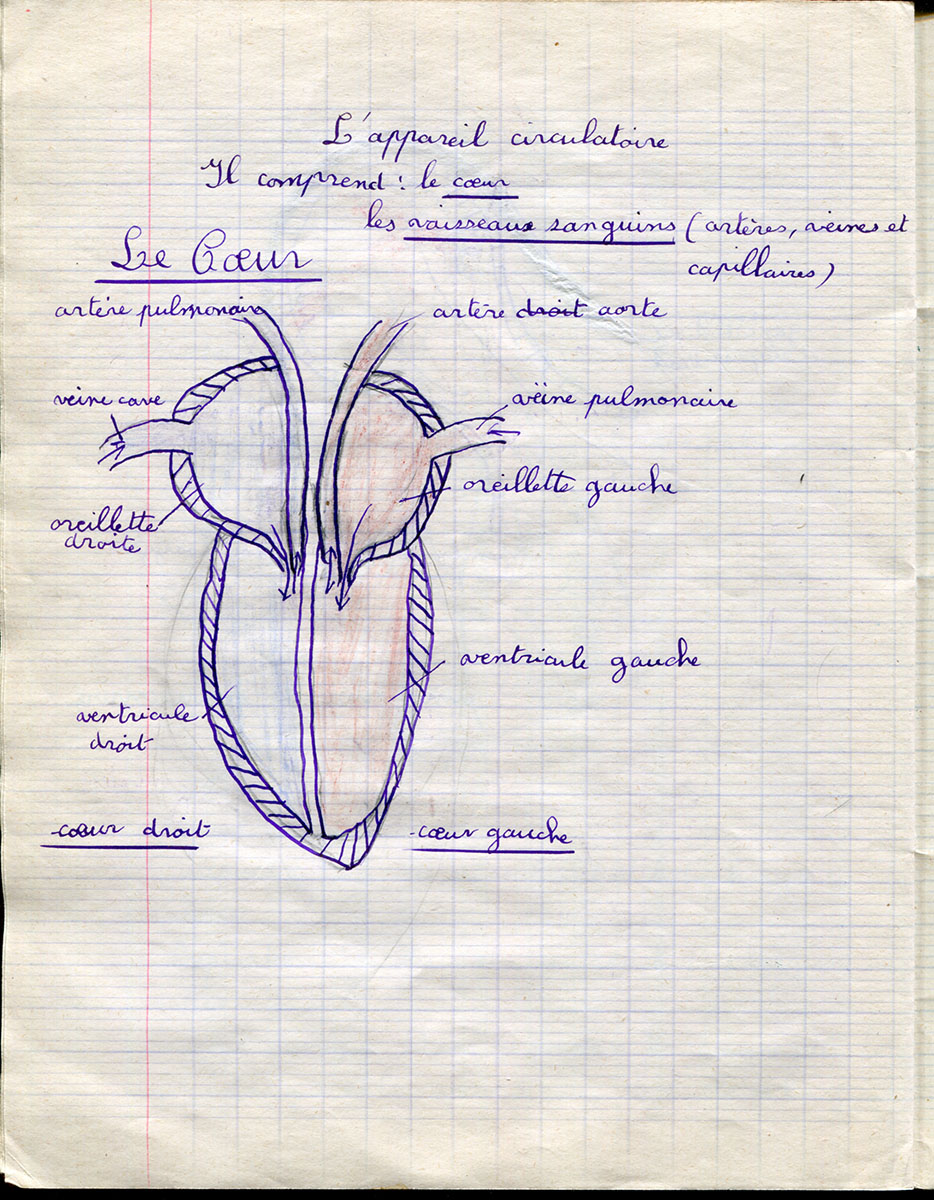 L'appareil circulatoire
Il comprend : le cœur
les vaisseaux sanguins (artères, veines et
capillaires)
Le Cœur
artère pulmonaire
artère droit aorte
veine cave
vëine pulmonaire
oreillette gauche
oreillette
droite
ventricule gauche
ventricule
droit
-cœur droit
-cœur gauche